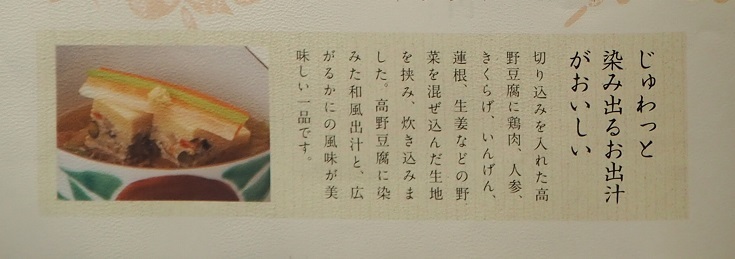 じゅわっと
染み出るお出汁
がおいしい
切り込みを入れた高
野豆腐に鶏肉、人参、
きくらげ、いんげん、
蓮根、生姜などの野
菜を混ぜ込んだ生地
を挟み、炊き込みま
した。高野豆腐に染
みた和風出汁と、広
がるかにの風味が美
味しい一品です。